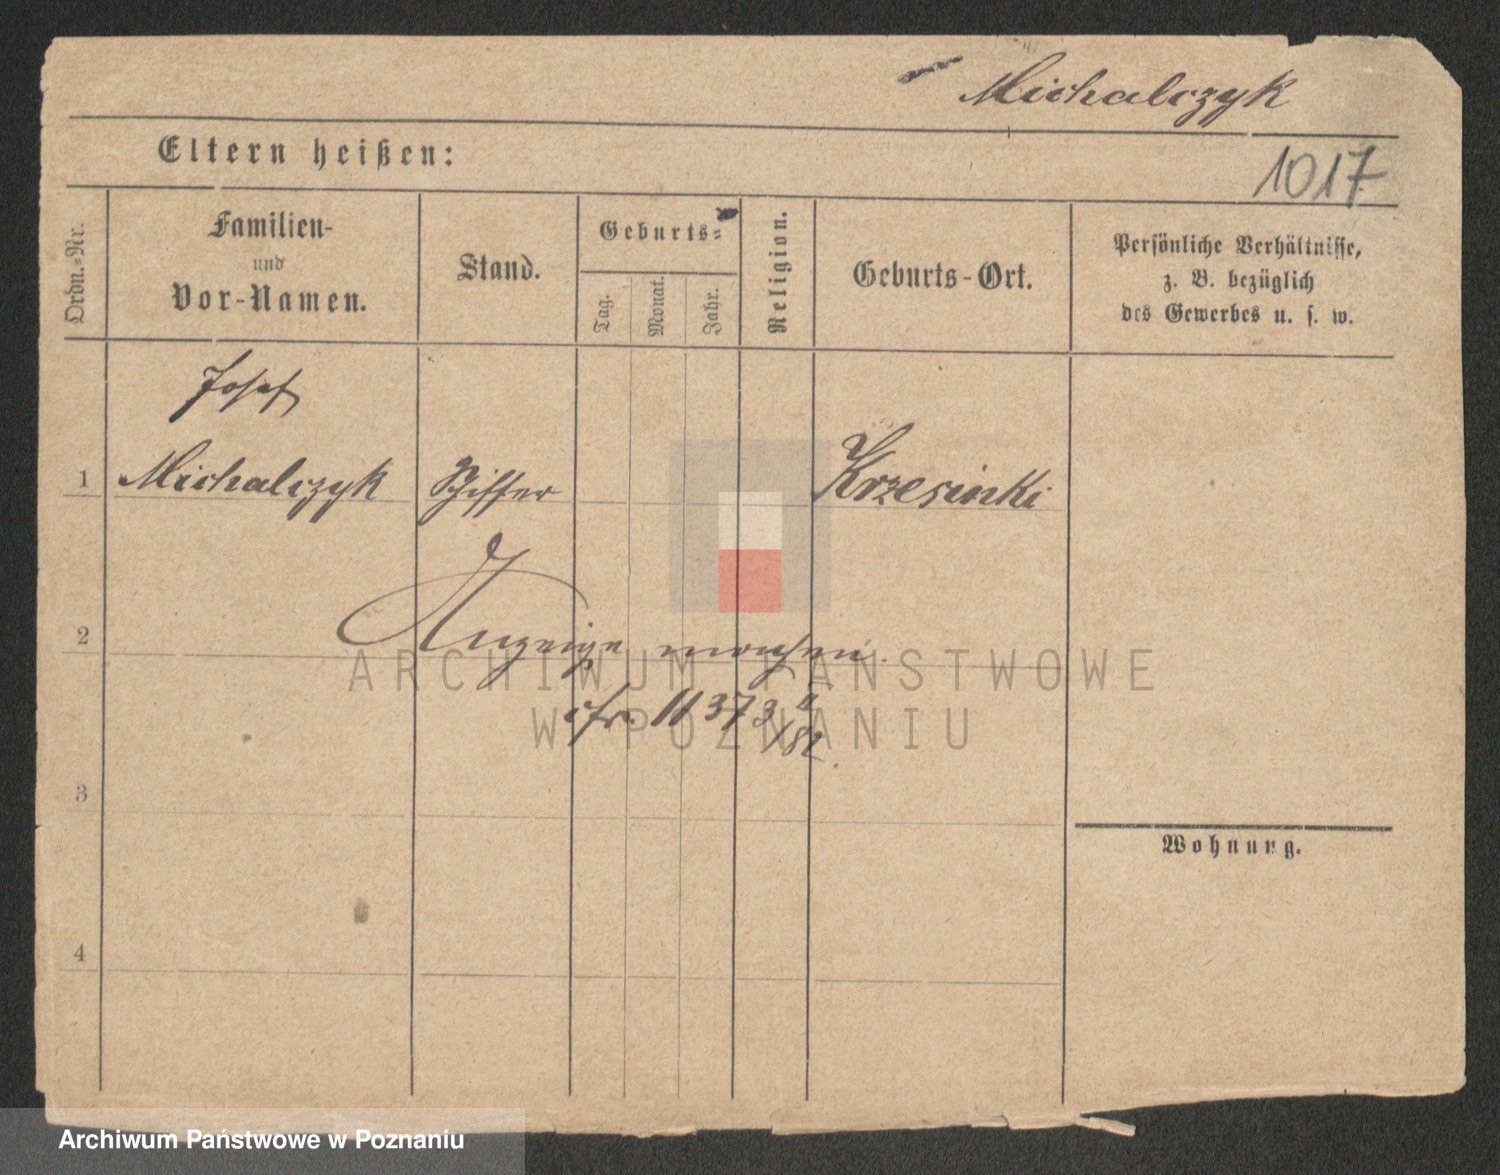 Michalczyk
Eltern heißen:
1017
Ordn.-Nr.
Familien-
und
Vor-Namen.
Stand.
Geburts-
Tag.
Monat.
Jahr.
Religion.
Geburts-Ort.
Persönliche Verhältnisse,
z. B. bezüglich
des Gewerbes u. s. w.
Josef
1 Michalczyk Schiffer Krzesinki
2
Anzeige machen.
cfr. 11373 II/82.
3
Wohnung.
4
ARCHIWUM PAŃSTWOWE
W POZNANIU
Archiwum Państwowe w Poznaniu